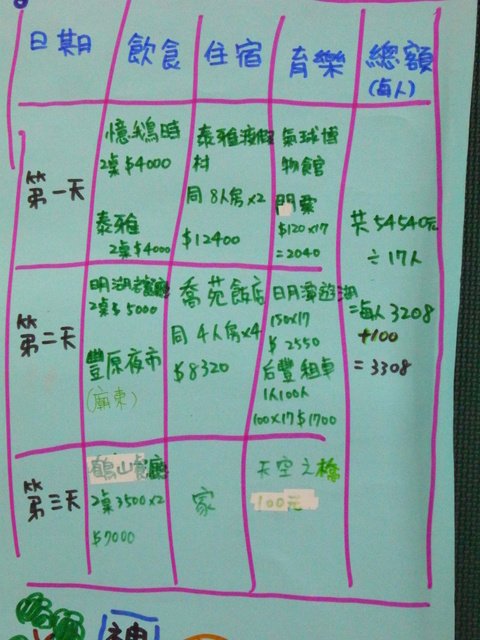 日期 飲食 住宿 育樂 總額
(每人)
第一天
憶鵝時
2桌$4000
泰雅
2桌$4000
泰雅渡假
村
同8人房×2
$12400
氣球博
物館
門票
$120×17
=2040
第二天
明湖餐廳
2桌$5000
豐原夜市
(廟東)
喬苑飯店
同4人房×4
$8320
日月潭遊湖
150×17
$2550
后豐租車
1人100人
100×17$1700
第三天
鶴山餐廳
2桌3500×2
$7000
家
天空之橋
100元
共54540元
÷17人
=每人3208
+100
=3308
神